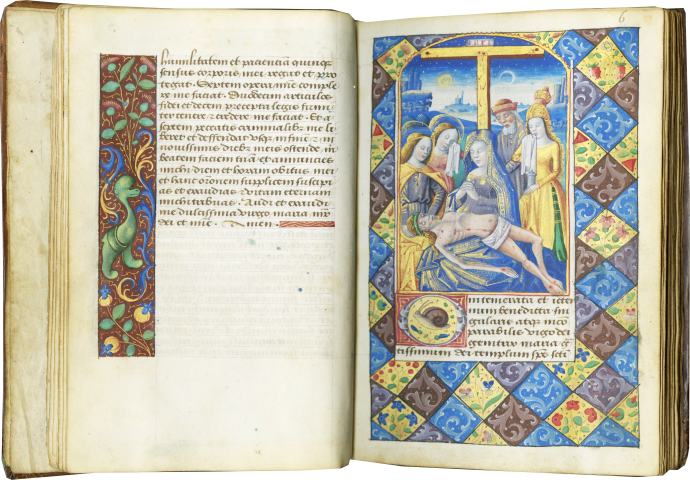 humilitatem et pacienciā quinqȝ
sensus corporis mei regat et pro
tegat. Septem opera mīe comple
re me faciat. Duodecim articulos
fidei et decem precepta legis firmi
ter tenere credere me faciat. Et a
septem peccatis criminalibȝ me li
beret et deffendat usqȝ in finē
novissimis diebȝ meis ostende m
beatem faciem tuā et annuncies
michi diem et horam obitus mei
et hanc oronem supplicem suscipi
as et exaudias vitam eternam
michi tribuas. Audi et exaudi
me dulcissima virgo maria mr
dei et mīe. Amen.
6
O intemerata et iter
num benedicta sin
gularis atqȝ incō
parabilis virgo dei
genitrix maria gr̄
tissimum dei templum spūs scti